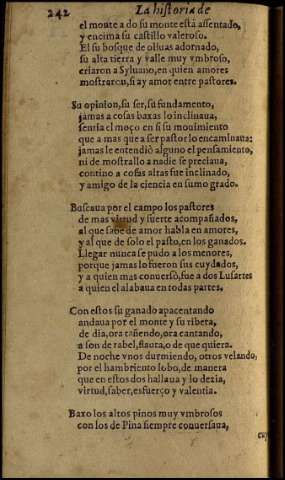 242 La historia de
el monte a do su monte està assentado,
y encima su castillo valeroso.
El su bosque de oliuas adornado,
su alta tierra y valle muy vmbroso,
criaron a Syluano, en quien amores
mostraron, si ay amor entre pastores.
Su opinion, su ser, su fundamento,
jamas a cosas baxas lo inclinaua,
sentia el moço en si su mouimiento
que a mas que a ser pastor lo encaminaua:
jamas le entendiò alguno el pensamiento,
ni de mostrallo a nadie se preciaua,
contino a cosas altas fue inclinado,
y amigo de la ciencia en sumo grado.
Buscaua por el campo los pastores
de mas virtud y suerte acompañados,
al que sabe de amor habla en amores,
y al que de solo el pasto, en los ganados.
Llegar nunca se pudo a los menores,
porque jamas lo fueron sus cuydados,
y a quien mas conuersò, fue a dos Lusartes
a quien el alabaua en todas partes.
Con estos su ganado apacentando
andaua por el monte y su ribera,
de dia, ora tañendo, ora cantando,
a son de rabel, flauta, o de que quiera.
De noche vnos durmiendo, otros velando,
por el hambriento lobo, de manera
que en estos dos hallaua y lo dezia,
virtud, saber, esfuerço y valentia.
Baxo los altos pinos muy vmbrosos
con los de Pina siempre conuersaua,